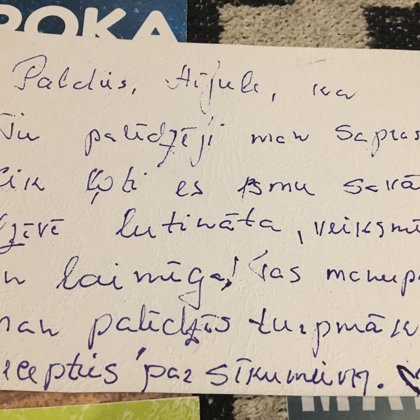 Paldies, ka
Tu palīdzēji man sapras
cik ļoti es esmu savā
dzīvē lutināta, veiksmī
un laimīga! Tas manup
man palīdzēs turpmāk
ecepties par sīkumiem.